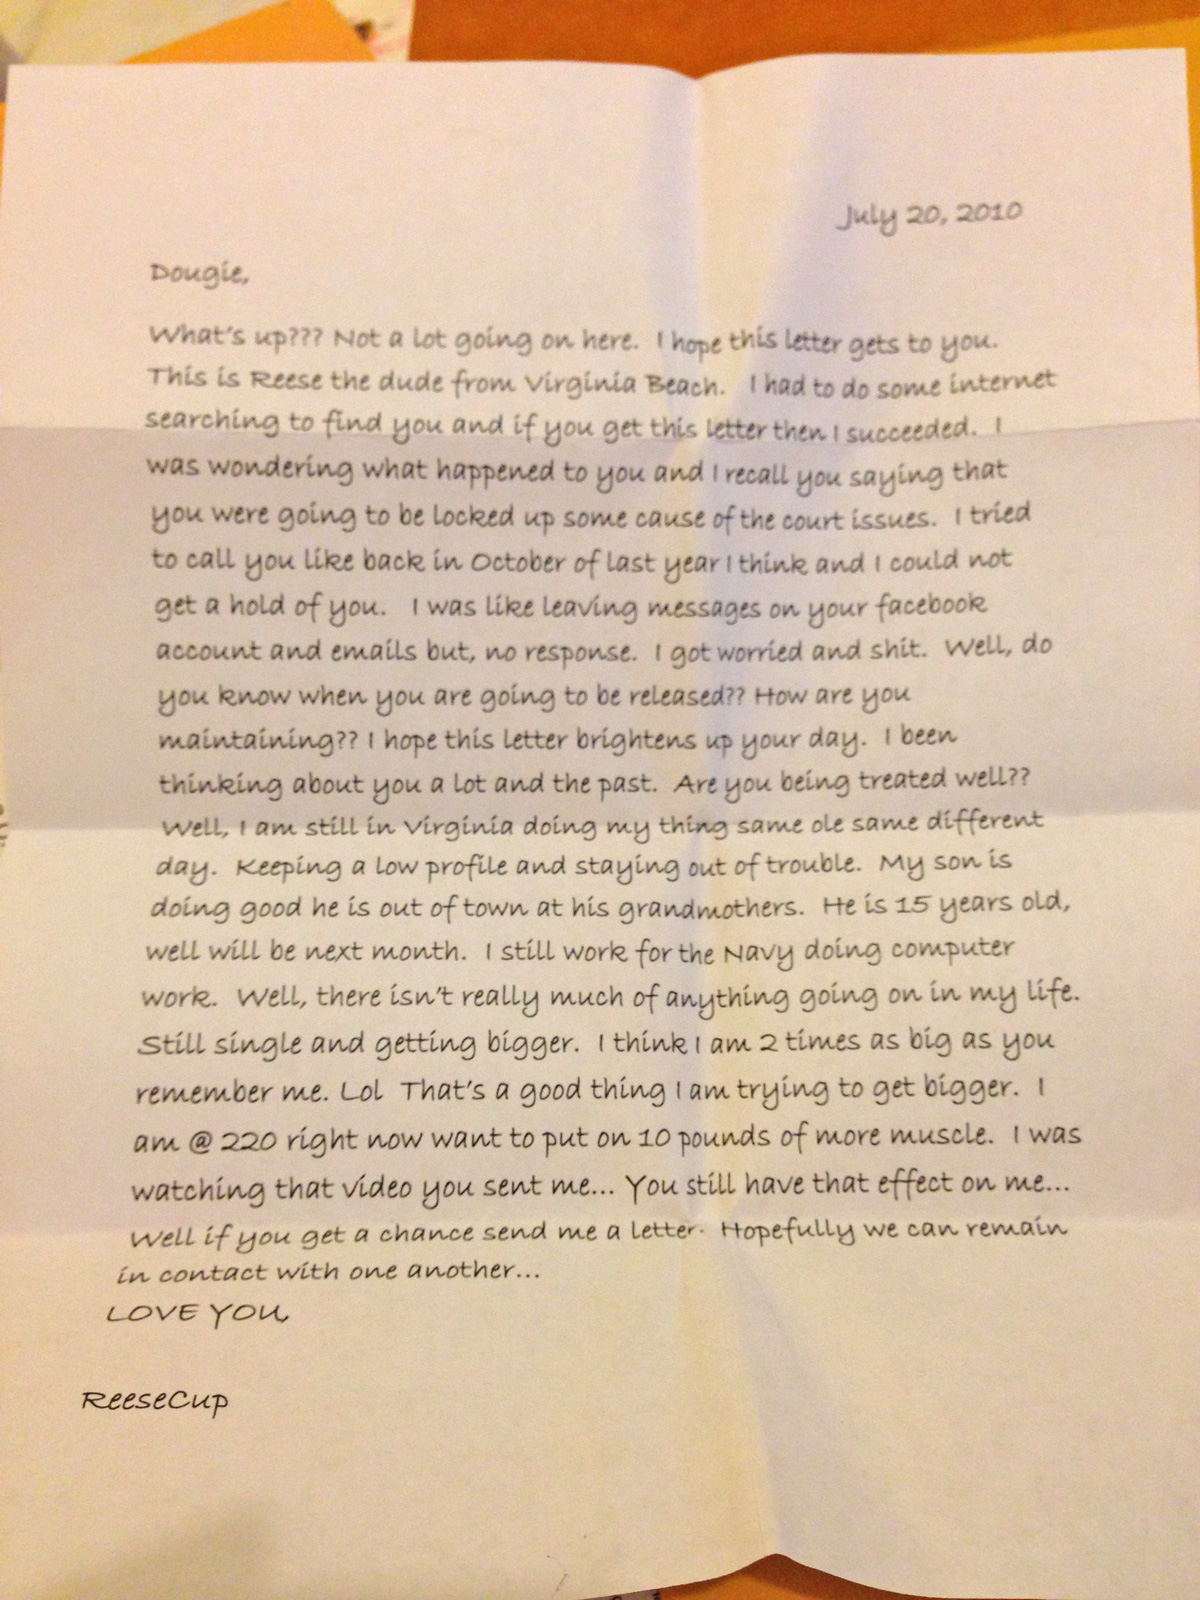 July 20, 2010
Dougie,
What's up??? Not a lot going on here. I hope this letter gets to you.
This is Reese the dude from Virginia Beach. I had to do some internet
searching to find you and if you get this letter then I succeeded. I
was wondering what happened to you and I recall you saying that
you were going to be locked up some cause of the court issues. I tried
to call you like back in October of last year I think and I could not
get a hold of you. I was like leaving messages on your facebook
account and emails but, no response. I got worried and shit. Well, do
you know when you are going to be released?? How are you
maintaining?? I hope this letter brightens up your day. I been
thinking about you a lot and the past. Are you being treated well??
Well, I am still in Virginia doing my thing same ole same different
day. Keeping a low profile and staying out of trouble. My son is
doing good he is out of town at his grandmothers. He is 15 years old,
well will be next month. I still work for the Navy doing computer
work. Well, there isn't really much of anything going on in my life.
Still single and getting bigger. I think I am 2 times as big as you
remember me. Lol That's a good thing I am trying to get bigger. I
am @ 220 right now want to put on 10 pounds of more muscle. I was
watching that video you sent me... You still have that effect on me...
Well if you get a chance send me a letter. Hopefully we can remain
in contact with one another...
LOVE YOU,
ReeseCup